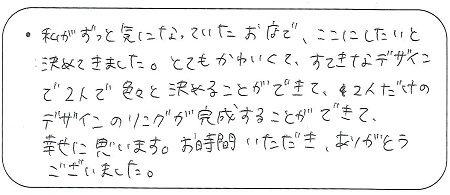 ・私がずっと気になっていたお店で、ここにしたいと
決めてきました。とてもかわいくて、すてきなデザイン
で2人で色々と決めることができて、2人だけの
デザインのリングが完成することができて、
幸せに思います。お時間いただき、ありがとう
ございました。